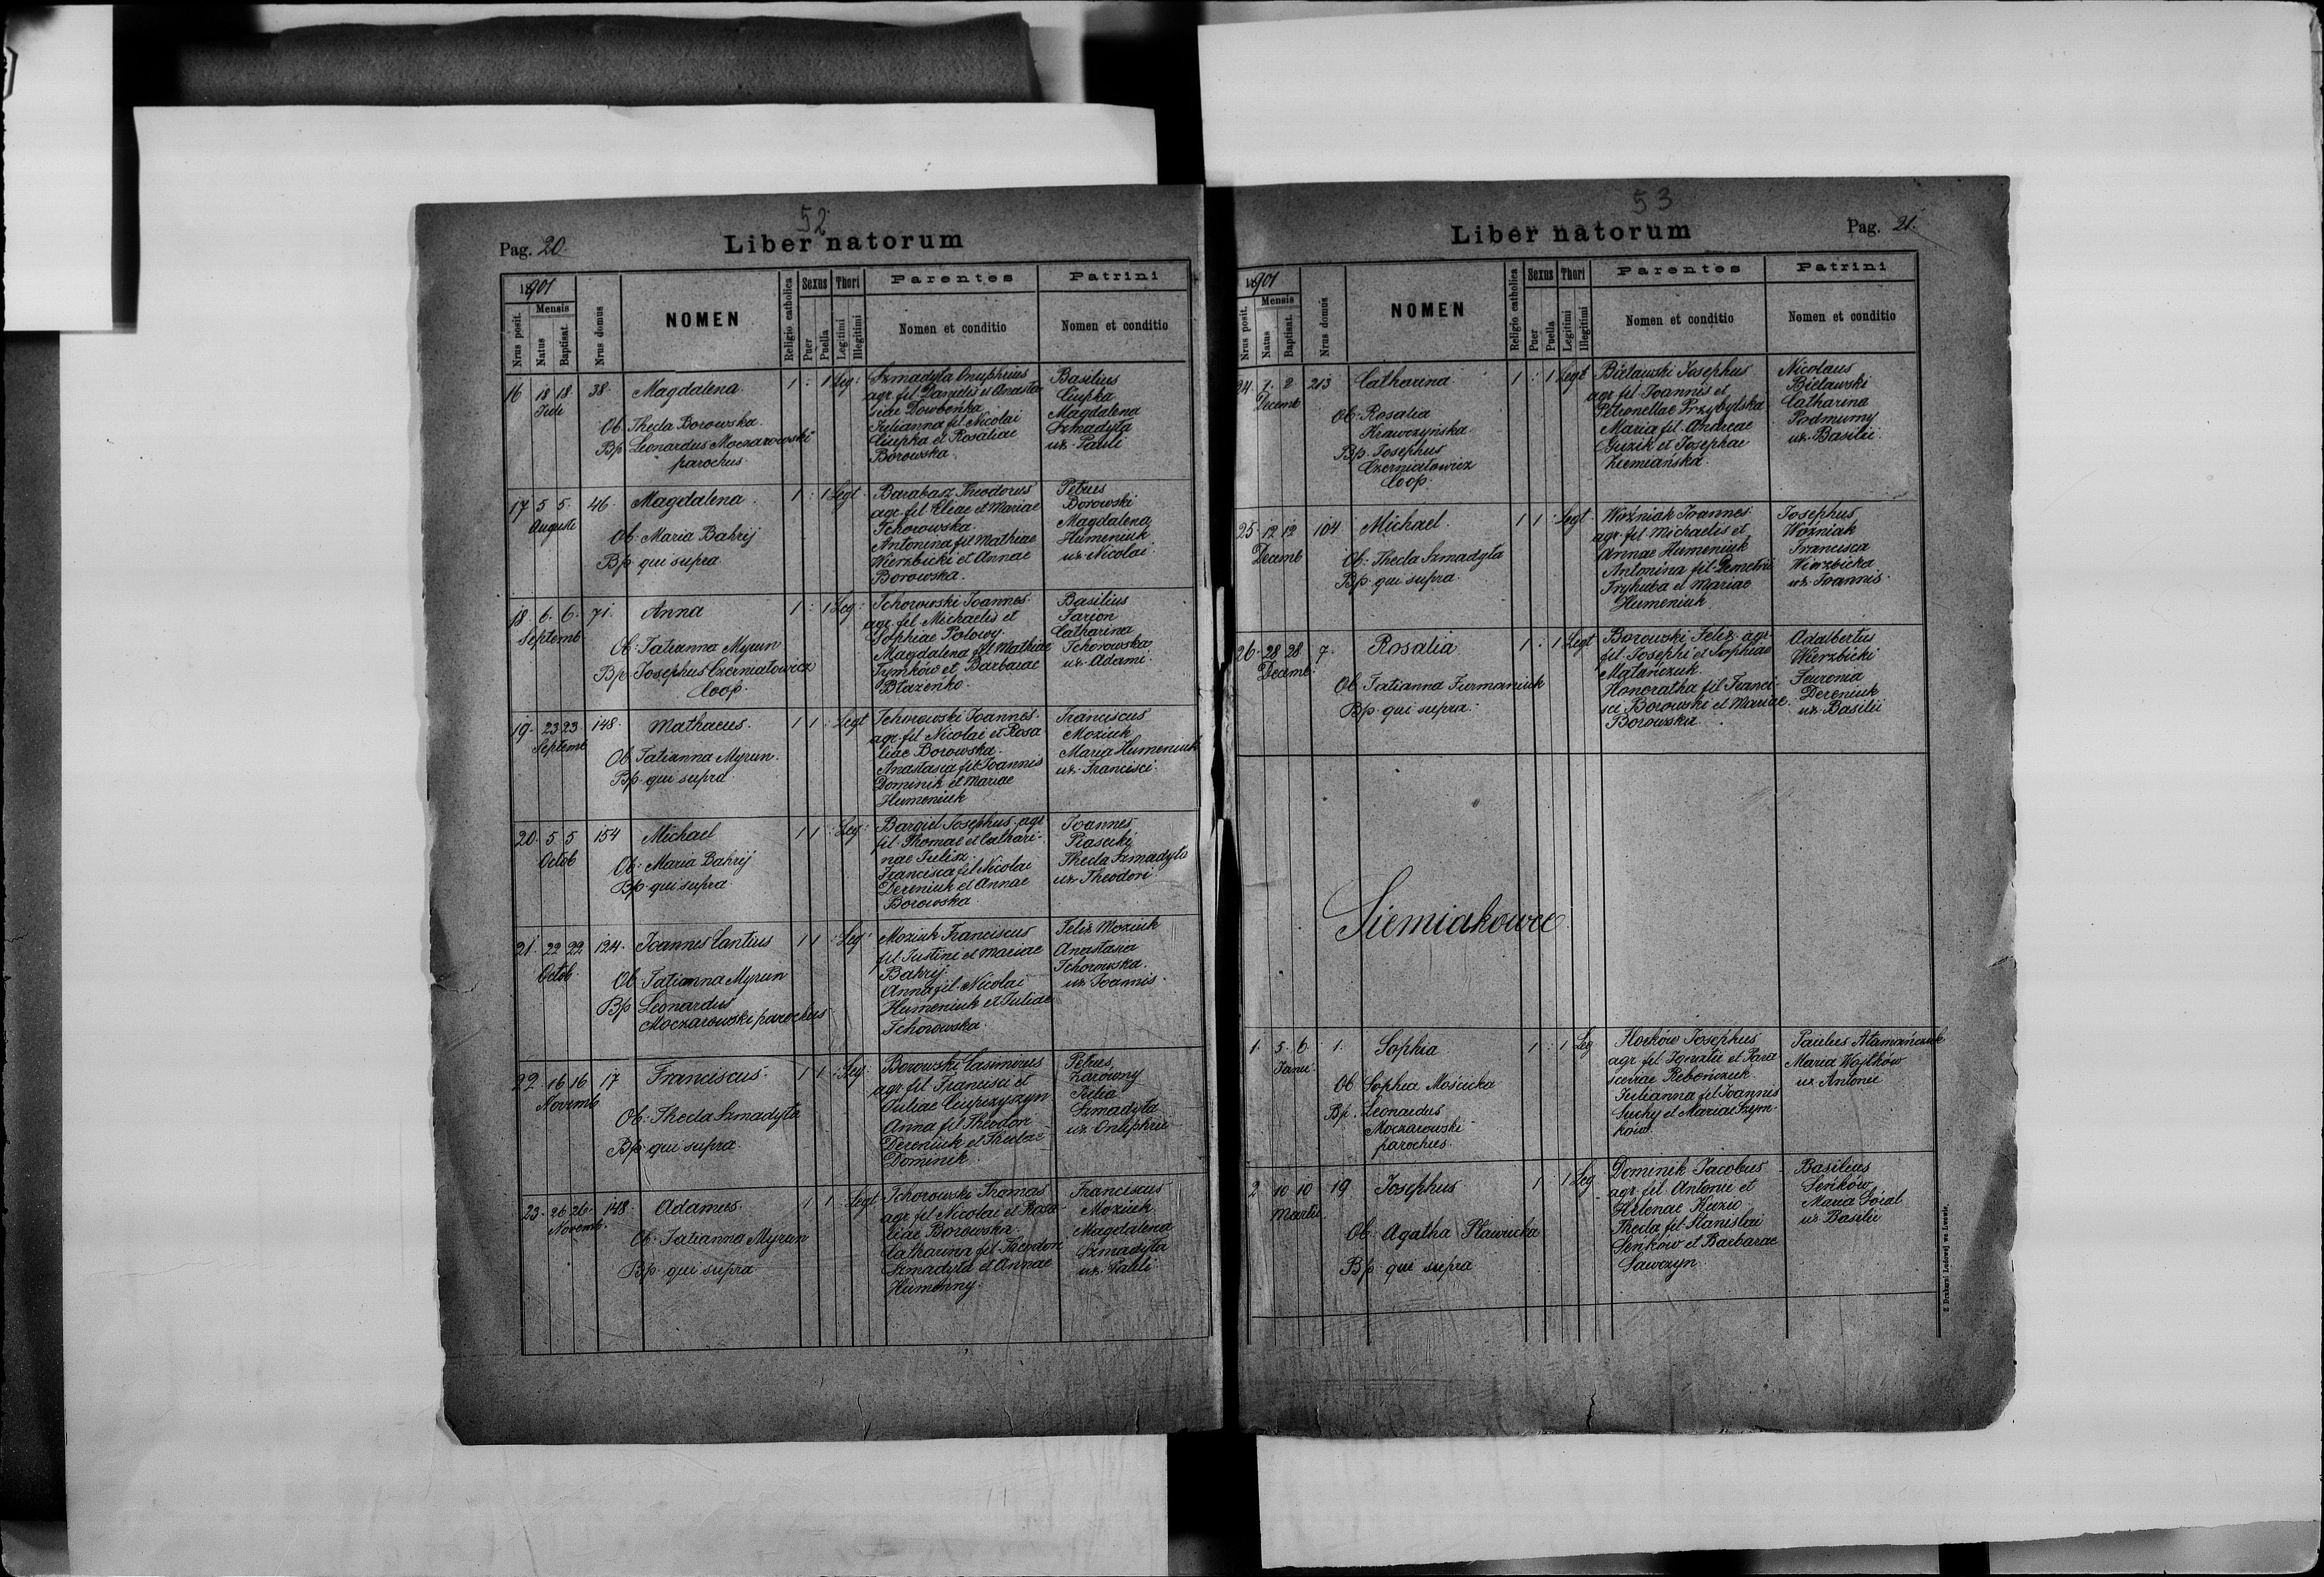 52
Pag. 20.
Liber natorum
1901
Nrus posit.
Mensis
Natus
Baptisat.
Nrus domus
NOMEN
Religio catholica
Sexus
Puer
Puella
Thori
Legitimi
Illegitimi
Parentes
Nomen et conditio
Patrini
Nomen et conditio
16 18 18 38. Magdalena. 1 : 1 Leg:
Juli
Ob. Thecla Borowska.
Bp. Leonardus Moczarowski
parochus.
Szmadyła Onuphrius
agr. fil. Danielis et Anasta
siae Dowbeńka
Julianna fil. Nicolai
Ciupka et Rosaliae
Borowska.
Basilius
Ciupka
Magdalena
Szmadyła
ux. Pauli
17 5 5. 46. Magdalena. 1 : 1 Legt.
Augusti
Ob. Maria Bahrij
Bp. qui supra
Barabasz Theodorus
agr. fil. Eliae et Mariae
Tchorowska.
Antonina fil. Mathiae
Wierzbicki et Annae
Borowska.
Petrus
Borowski
Magdalena
Humeniuk
ux. Nicolai.
18. 6. 6. 71. Anna 1 : 1 Leg:
Septemb.
Ob. Tatianna Myrun
Bp. Josephus Czerniatowicz
Coop.
Tchorowski Joannes
agr. fil. Michaelis et
Sophiae Połowy.
Magdalena fil. Mathiae
Tymków et Barbarae
Błażeńko.
Basilius
Farion
Catharina
Tchorowska
ux. Adami.
19. 23 23. 148. Mathaeus. 1 1 : Legt
Septemb
Ob. Tatianna Myrun.
Bp. qui supra.
Tchorowski Joannes.
agr. fil. Nicolai et Rosa
liae Borowska.
Anastasia fil. Joannis
Dominik et Mariae
Humeniuk
Franciscus
Moziuk
Maria Humeniuk
ux. Francisci.
20. 5 5 154 Michael 1 1 : Leg:
Octob
Ob: Maria Bahrij
Bp. qui supra.
Bargiel Josephus agr.
fil. Thomae et Cathari-
nae Julisz.
Francisca fil. Nicolai
Dereniuk et Annae
Borowska
Joannes
Piasecki
Thecla Szmadyło
ux. Theodori
21. 22 22 124. Joannes Cantius 1 1 : Leg:
Octob.
Ob. Tatianna Myrun
Bp. Leonardus
Moczarowski parochus
Moziuk Franciscus
fil. Justini et Mariae
Bahrij.
Anna fil. Nicolai
Humeniuk et Juliae
Tchorowska.
Felix Moziuk
Anastasia
Tchorowska.
ux. Joannis.
22. 16 16 17 Franciscus. 1 1 : Leg.
Novemb
Ob: Thecla Szmadyła
Bp. qui supra.
Borowski Casimirus
agr. fil. Francisci et
Juliae Ciupczyszyn
Anna fil. Theodori
Dereniuk et Theclae
Dominik.
Petrus
Zarowny
Julia
Szmadyła
ux. Onuphrii
23. 26 26. 148. Adamus. 1 1 : Legt
Novemb.
Ob. Tatianna Myrun
Bp. qui supra
Tchorowski Thomas
agr. fil. Nicolai et Rosa-
liae Borowska.
Catharina fil. Theodori
Szmadyła et Annae
Humenny.
Franciscus
Moziuk
Magdalena
Szmadyła
ux. Pauli
53
Liber natorum
Pag. 21.
1901
Nrus posit.
Mensis
Natus
Baptisat.
Nrus domus
NOMEN
Religio catholica
Sexus
Puer
Puella
Thori
Legitimi
Illegitimi
Parentes
Nomen et conditio
Patrini
Nomen et conditio
24 1. 2 213 Catharina 1 : 1 Legt
Decemb
Ob. Rosalia
Krawczyńska.
Bp. Josephus
Czerniatowicz
Coop.
Bielawski Josephus
agr. fil. Joannis et
Petronellae Przybylska
Maria fil. Andreae
Guzik et Josephae
Ziemiańska.
Nicolaus
Bielawski
Catharina
Podmurny
ux. Basilii.
25. 12 12 104. Michael. 1 1 : Legt.
Decemb
Ob: Thecla Szmadyła
Bp. qui supra.
Woźniak Joannes
agr. fil. Michaelis et
Annae Humeniuk
Antonina fil. Demetrii
Tryhuba et Mariae
Humeniuk
Josephus
Woźniak
Francisca
Wierzbicka
ux. Joannis.
26. 28 28 7. Rosalia 1 : 1 Legt
Decemb.
Ob. Tatianna Furmaniuk
Bp. qui supra.
Borowski Felix agr.
fil. Josephi et Sophiae
Matańczuk.
Honoratha fil. Franci-
sci Borowski et Mariae.
Borowska.
Adalbertus
Wierzbicki
Fevronia
Dereniuk
ux. Basilii
Siemiakowce
1. 5. 6. 1. Sophia 1 : 1 Leg
Janu.
Ob. Sophia Mościcka
Bp. Leonardus
Moczarowski
parochus.
Horków Josephus
agr. fil. Ignatii et Para
scevae Rebeńczuk.
Julianna fil. Joannis
Suchy et Mariae Szym-
ków.
Paulus Atamańczuk
Maria Wojtków
ux. Antonii
2. 10 10 19 Josephus 1 : 1 Leg
Martii.
Ob. Agatha Pławucka
Bp. qui supra
Dominik Jacobus
agr. fil. Antonii et
Helenae Kuzio
Thecla fil. Stanislai
Seńków et Barbarae
Sawczyn
Basilius
Seńków
Maria Góral
ux. Basilii
Z Drukarni Ludowej we Lwowie.